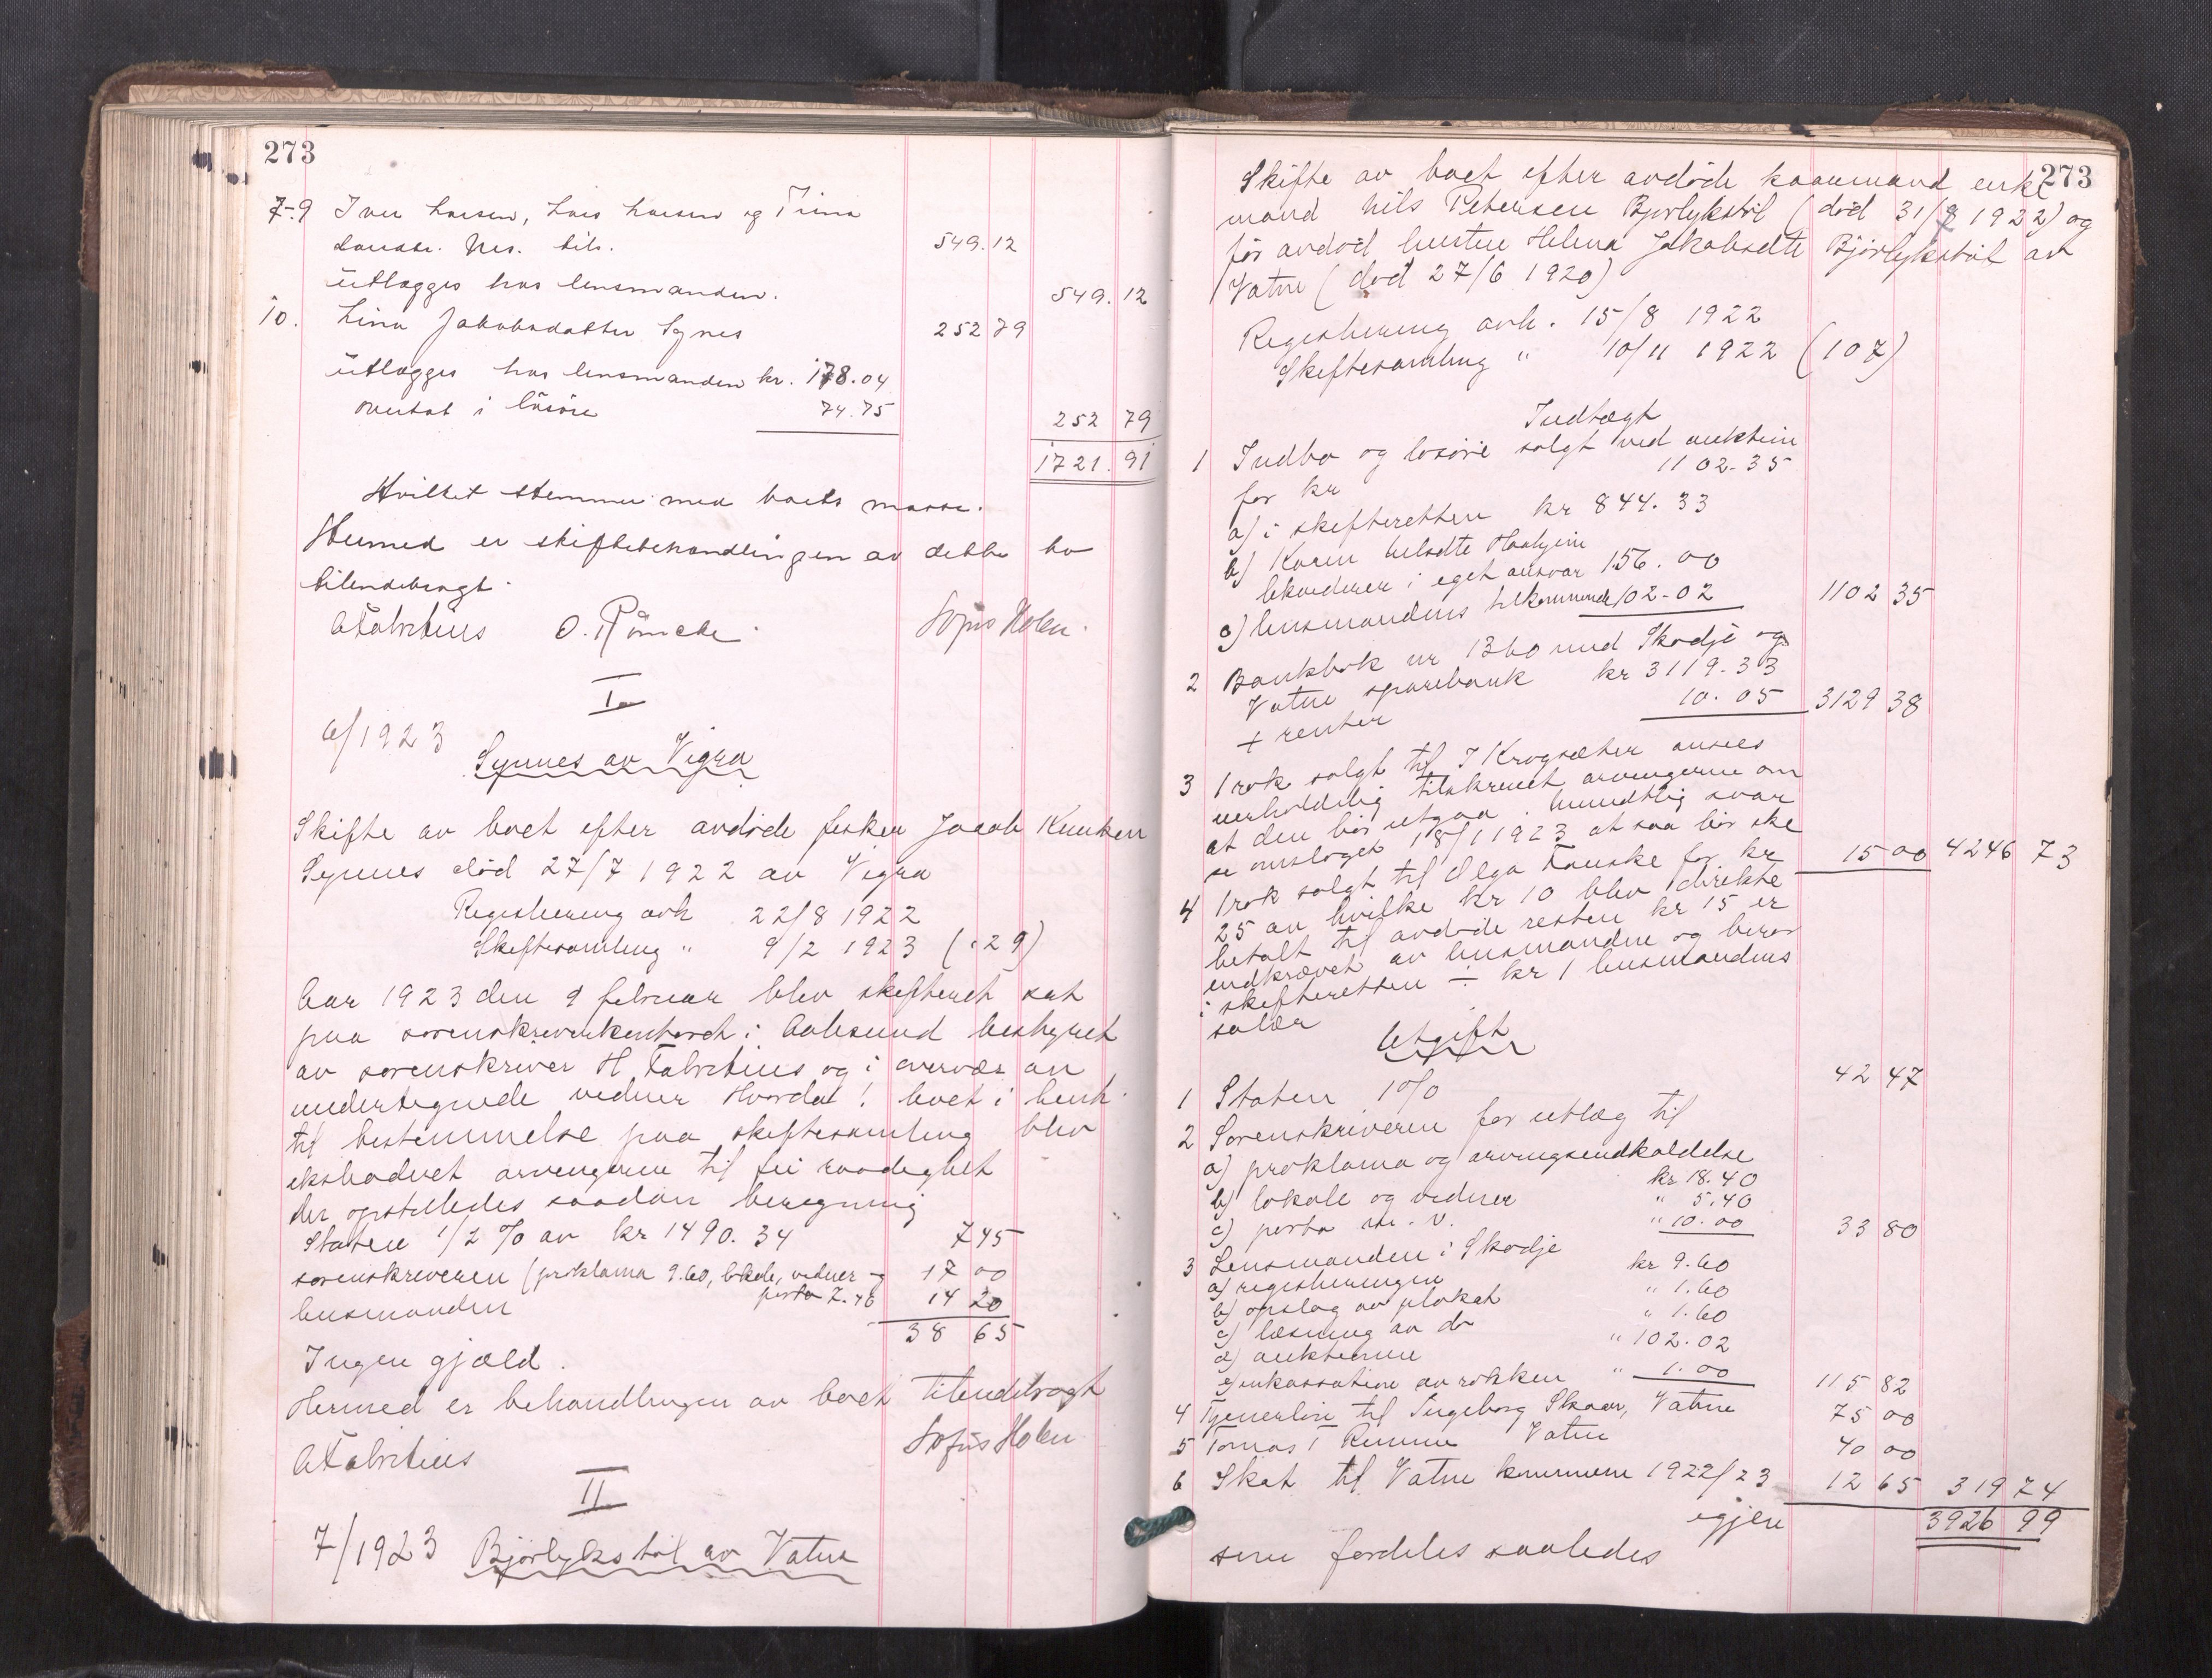 273
7-9 Iver Larsen, Lars Larsen og Trina
Larsdtr. Nes. tils. 549.12
utlægges hos lensmanden. 549.12
10. Lina Jakobsdatter Synes 252 79
utlægges hos lensmanden kr. 178.04
overtat i løsøre 74.75 252 79
1721.91
Hvilket stemmer med boets masse.
Hermed er skiftebehandlingen av dette bo
tilendebragt.
AFabritius O. Sofus Holen.
I
6/1923
Synnes av Vigra
Skifte av boet efter avdøde fisker Jacob Knutsen
Synnes død 27/7 1922 av Vigra
Registrering avh 22/8 1922
Skiftesamling " 9/2 1923 (29)
Aar 1923 den 9 februar blev skifteret sat
paa sorenskriverkontoret i Aalesund bestyret
av sorenskriver H. Fabritius og i overvær av
undertegnede vidner Hvorda! boet i henh.
til bestemmelse paa skiftesamling blev
ekstradert arvingerne til fri raadighet
der opstilledes saadan beregning
Staten 1/2 % av kr 1490.34 7 45
sorenskriveren (proklama 9.60, lokale, vidner og porto 7.40 17 00
lensmanden 14 20
38 65
Ingen gjæld.
Hermed er behandlingen av boet tilendebragt
AFabritius Sofus Holen
II
7/1923 Bjørlykstøl av Vatne
273
Skifte av boet efter avdøde kaarmand enke
mand Nils Petersen Bjørlykstøl (død 31/7 1922) og
før avdød hustru Helena Jakobsdtr Bjørlykstøl av
Vatne (død 27/6 1920)
Registrering avh. 15/8 1922
Skiftesamling " 10/11 1922 (107)
Indtægt
1 Indbo og løsøre solgt ved auktion
for kr 1102.35
a) i skifteretten kr 844.33
b) Karen Nilsdtr
likviderer i eget ansvar 156.00
c) lensmandens tilkommende 102.02 1102 35
2 Bankbok nr 1360 med Skodje og
Vatne sparebank kr 3119.33
+ renter 10.05 3129 38
3 1 rok solgt til J Krogsæter ansees
uerholdelig tilskrevet arvingerne om
at den bør utgaa. mundtlig svar
se omslaget 18/1 1923 at saa bør ske
4 1 rok solgt til Olga Fauske for kr 15 00 4246 73
25 av hvilke kr 10 blev direkte
betalt til avdøde resten kr 15 er
indkrævet av lensmanden og beror
i skifteretten ÷ kr 1 lensmandens
salær
Utgift
1 Staten 1% 42 47
2 Sorenskriveren for utlæg til
a) proklama og arvingsindkaldelse kr 18.40
b) lokale og vidner " 5.40
c) porto m.v. " 10.00 33 80
3 Lensmanden i Skodje
a) registreringen kr 9.60
b) opslag av plakat " 1.60
c) læsning av do " 1.60
d) auktionen " 102.02
e) inkassation av rokken " 1.00 115 82
4 Tjenerløn til Ingeborg Skaar, Vatne 75 00
5 Tomas T Vatne 40 00
6 Skat til Vatne kommune 1922/23 12 65 319 74
igjen 3926 99
som fordeles saaledes